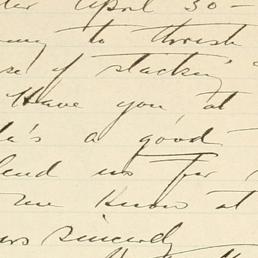 April 30 -
to thresh
of stacking
Have you at
a good
lend us for
me know at
sincerely